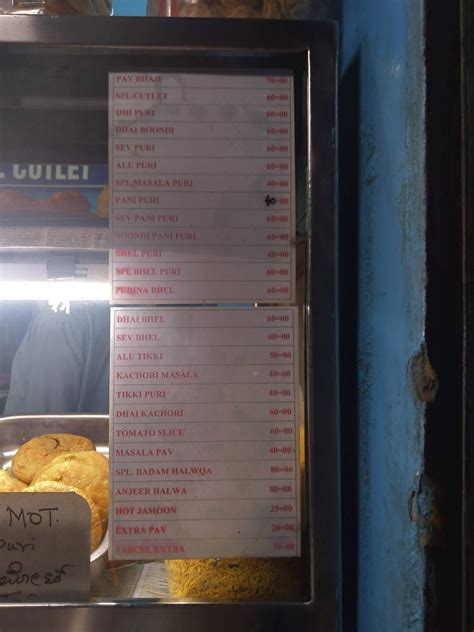 PAV BHAJI 70=00
SPL.CUTLET 60=00
DHI PURI 60=00
DHAI BOONDI 60=00
SEV PURI 60=00
ALU PURI 60=00
SPL.MASALA PURI 40=00
PANI PURI 40=00
SEV PANI PURI 60=00
BOONDI PANI PURI 60=00
BHEL PURI 40=00
SPL BHEL PURI 60=00
PUDINA BHEL 60=00
CUTLET
DHAI BHEL 60=00
SEV BHEL 60=00
ALU TIKKI 50=00
KACHORI MASALA 40=00
TIKKI PURI 40=00
DHAI KACHORI 60=00
TOMATO SLICE 60=00
MASALA PAV 40=00
SPL. BADAM HALWQA 80=00
ANJEER HALWA 80=00
HOT JAMOON 25=00
EXTRA PAV 20=00
PARCEL EXTRA 10=00
MOT.
Puri